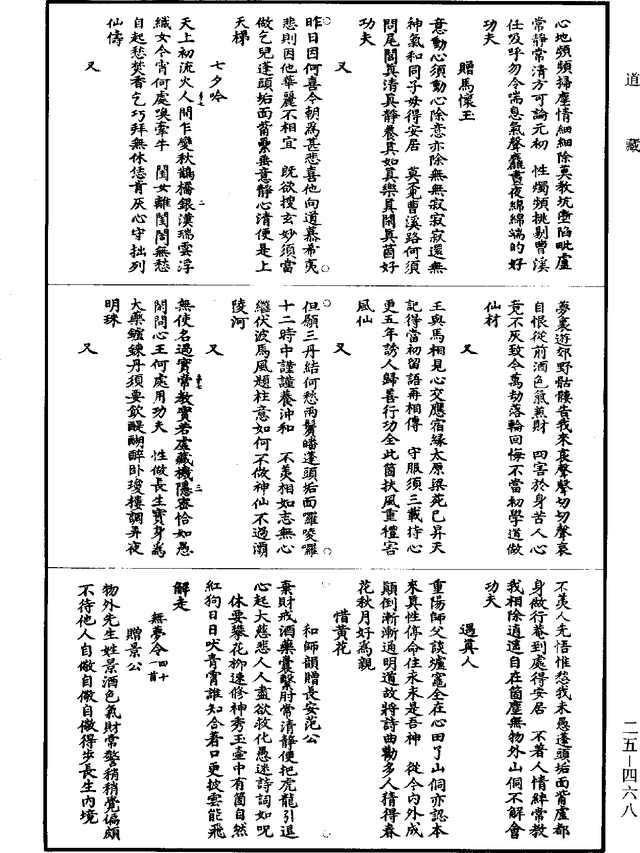 道藏
心地頻頻掃塵情細細除莫教坑塹陷毗盧
常靜常清方可論元初　性燭頻挑剔曹溪
任吸呼勿令喘息氣聲麤晝夜綿綿端的好
功夫
贈馬懷玉
意動心須動心除意亦除無無寂寂寂還無
神氣和同子母得安居　莫覓曹溪路何須
問尾閭真清真靜養真如真樂真閑真箇好
功夫
又
昨日因何喜今朝為甚悲喜他向道慕希夷
悲則因他華麗不相宜　既欲搜玄妙須當
做乞兒蓬頭垢面養無意靜心清便是上
天梯
七夕吟
天上初流火人間乍變秋鵲橋銀漢瑞雲浮
織女今宵何處喚牽牛　閨女離閨閣無愁
自起愁焚香乞巧拜無休恁肯灰心守拙列
仙儔
又
夢裏遊郊野骷髏告我來哀聲聲切切聲哀
自恨從前酒色氣兼財　四害於身苦人心
竟不灰致令萬劫落輪回悔不當初學道做
仙材
又
王與馬相見心交應宿緣太原梁苑已昇天
記得當初留語再相傳　守服須三載持心
更五年誘人歸善行功全此箇扶風重禮害
風仙
又
但願三丹結何愁兩鬢皤蓬頭垢面囉唆囉
十二時中謹謹養沖和　不羡相如志無心
繼伏波馬風題柱意如何不做神仙不過灞
陵河
又
無使名過實常教實若虛藏機隱密恰如愚
閑問心王何處用功夫　性做長生寶身為
大藥鑪鍊丹須要飲醍醐醉卧瓊樓調弄夜
明珠
又
不羡人先悟惟愁我未愚蓬頭垢面膂盧都
身做行菴到處得安居　不著人情絆常教
我相除逍遥自在箇塵無物外山侗不解會
功夫
遇真人
重陽師父談爐竈全在心田了山侗亦認本
來真性停命住永永是吾神　從今內外成
顛倒漸漸通明道故將詩曲勸多人猜得春
花秋月好為親
惜黃花
和師韻贈長安范公
棄財戒酒藥囊繫肘常清靜便把虎龍引追
心起大慈悲人人盡欲救化愚迷詩詞如呪
休要攀花柳速修神秀玉壺中有箇自然
紅狗日日吠青霄誰知合著口更披雲能飛
解走
無夢令一十四首
贈景公
物外先生姓景酒色氣財常警稍稍覺偏頗
不待他人自儆自儆自儆得步長生內境
二五—四六八